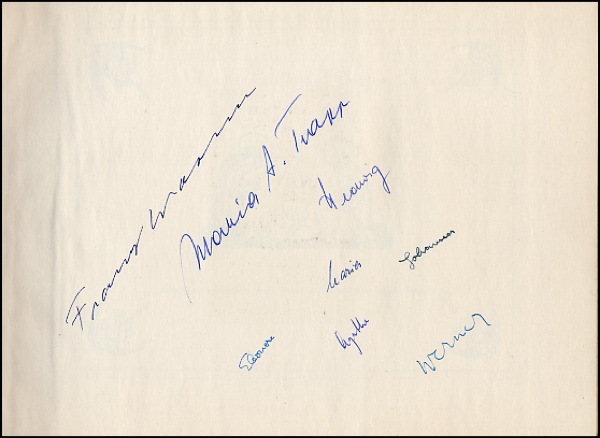 Franz Wasner
Maria A. Trapp
Hedwig
Johannes
Maria
Eleonore
Agathe
Werner